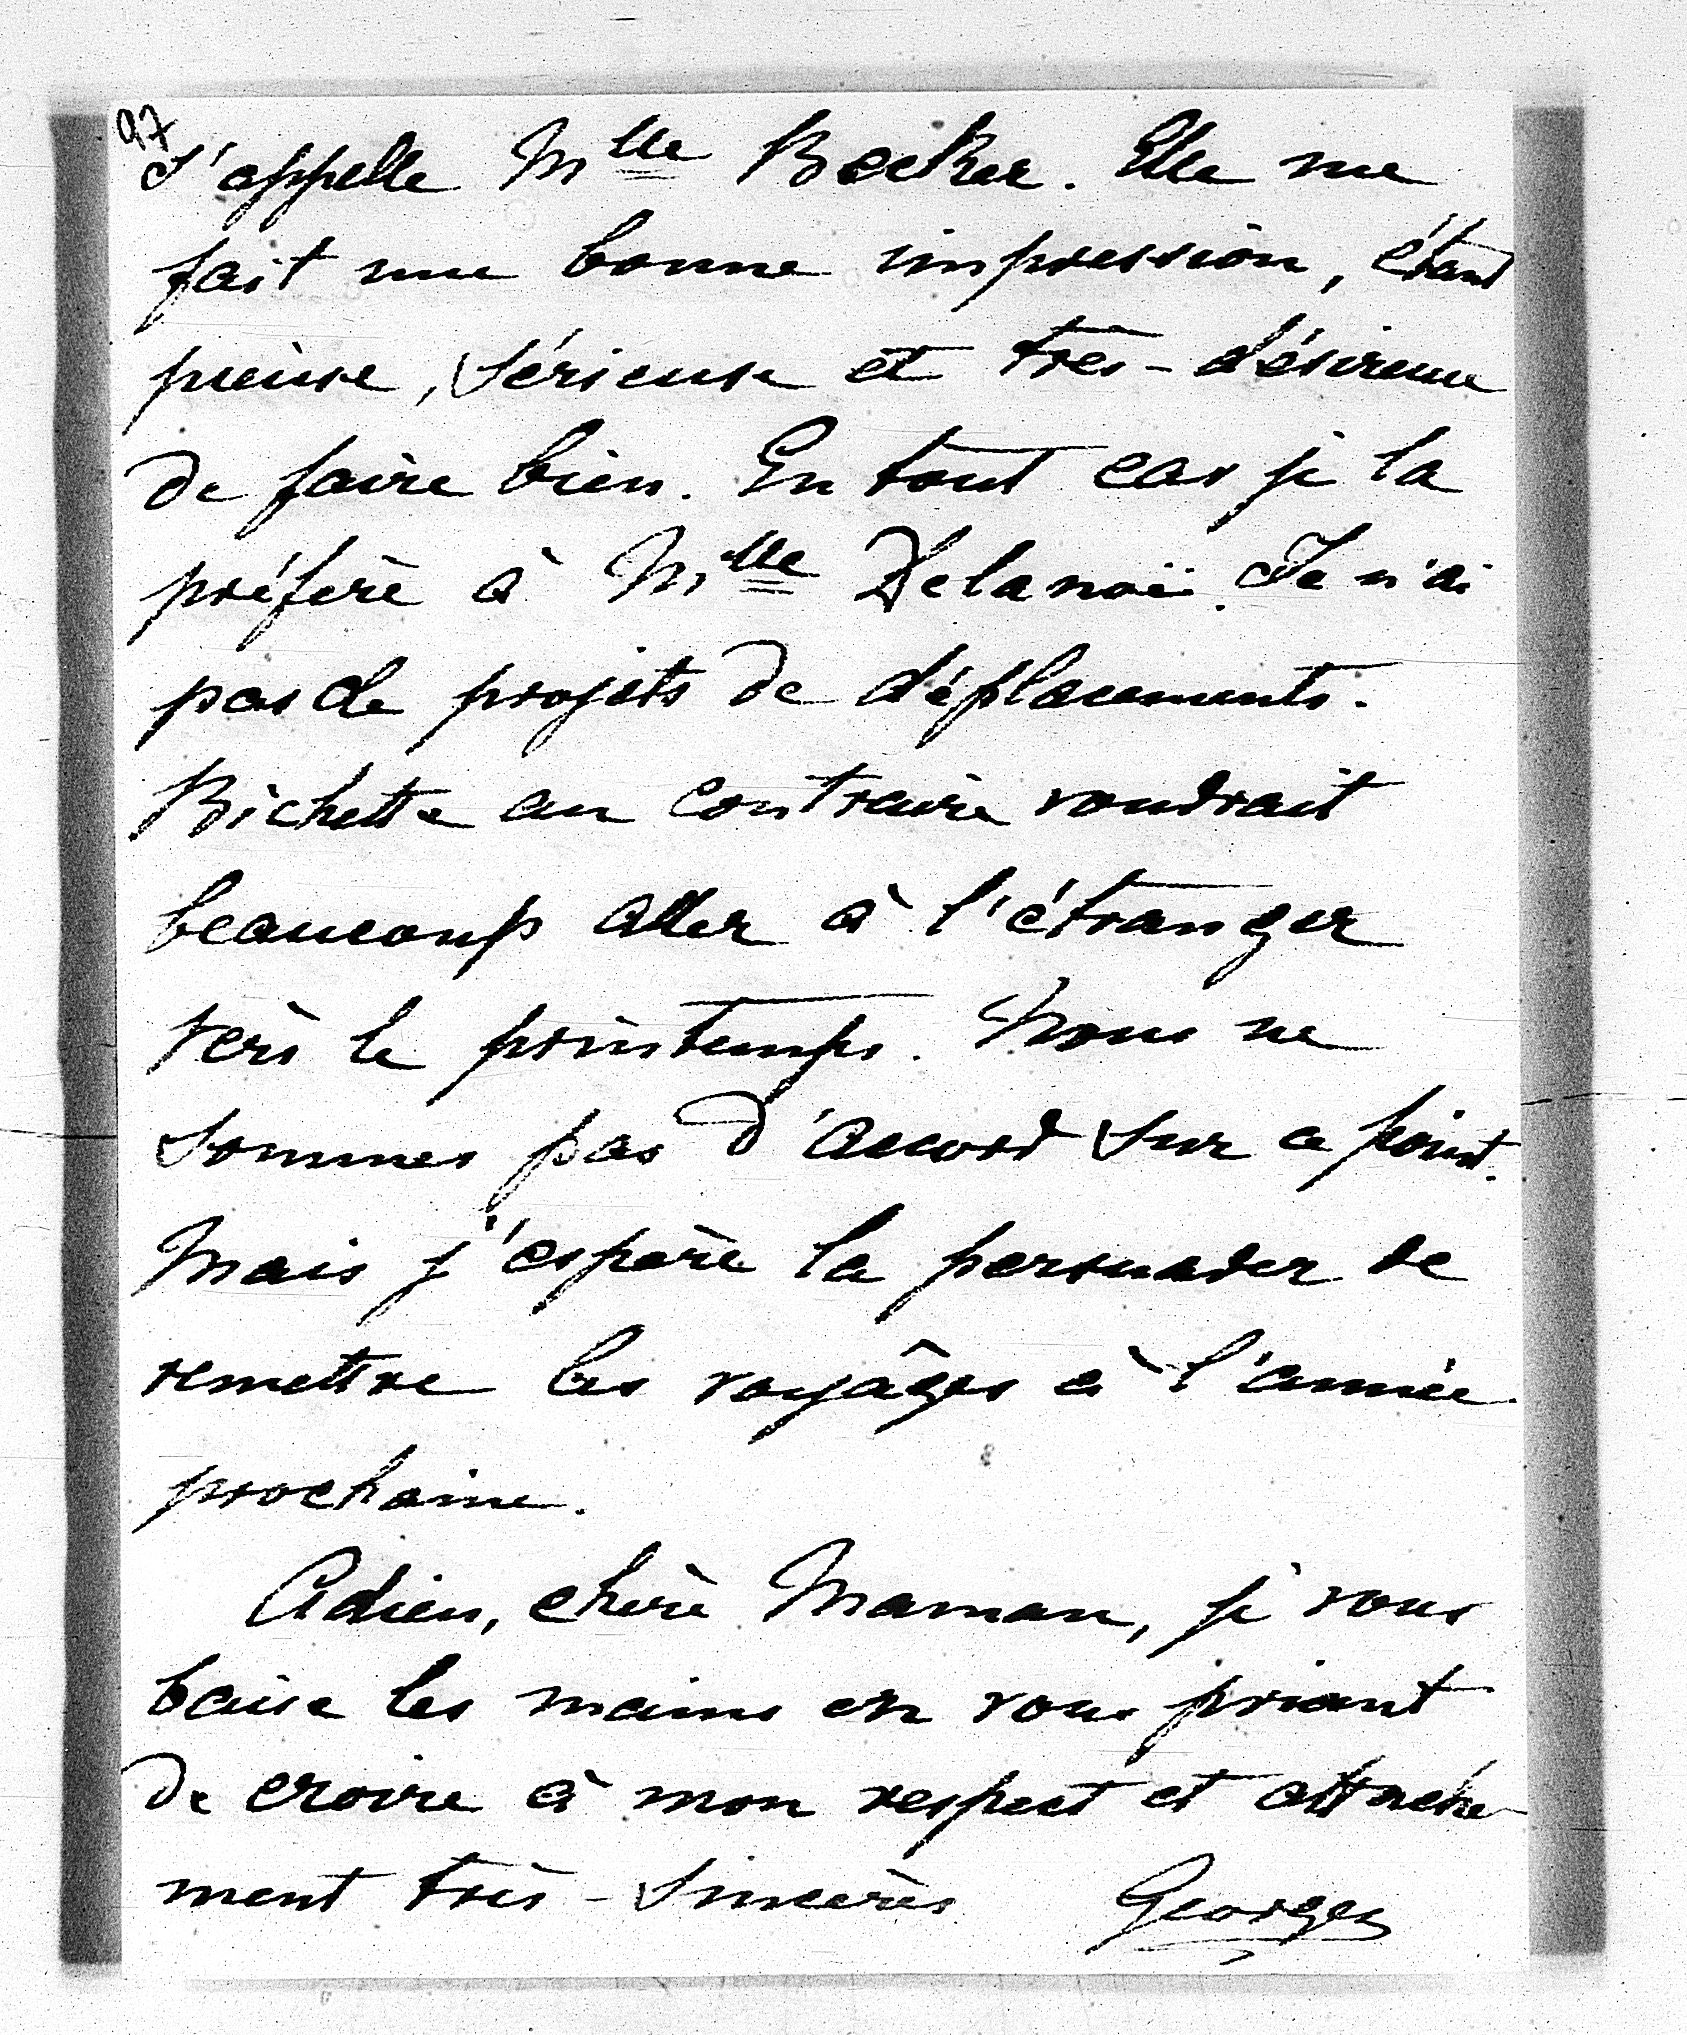 97
s'appelle Mlle Becker. Elle me
fait une bonne impression, étant
pieuse, sérieuse et très-désireuse
de faire bien. En tout cas je la
préfère à Mlle Delanoë. Je n'ai
pas de projets de déplacements.
Bichette au contraire voudrait
beaucoup aller à l'étranger
vers le printemps. Nous ne
sommes pas d'accord sur ce point.
Mais j'espère la persuader de
remettre les voyâges à l'année
prochaine.
Adieu, chère Maman, je vous
baise les mains en vous priant
de croire à mon respect et attache-
ment très-sincères Georges